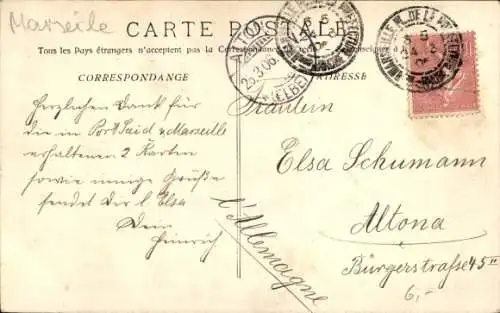 Marseile
CARTE POSTALE
Tous les Pays étrangers n'acceptent pas la Correspondance
CORRESPONDANCE
ADRESSE
Herzlichen Dank für
die in Port Said u. Marseille
erhaltenen 2 Karten
sowie innige Grüße
sendet der l. Elsa
Dein
Heinrich
Fräulein
Elsa Schumann
Altona
Bürgerstraße 45 II
d'Allemagne
6,-
(ELBE)